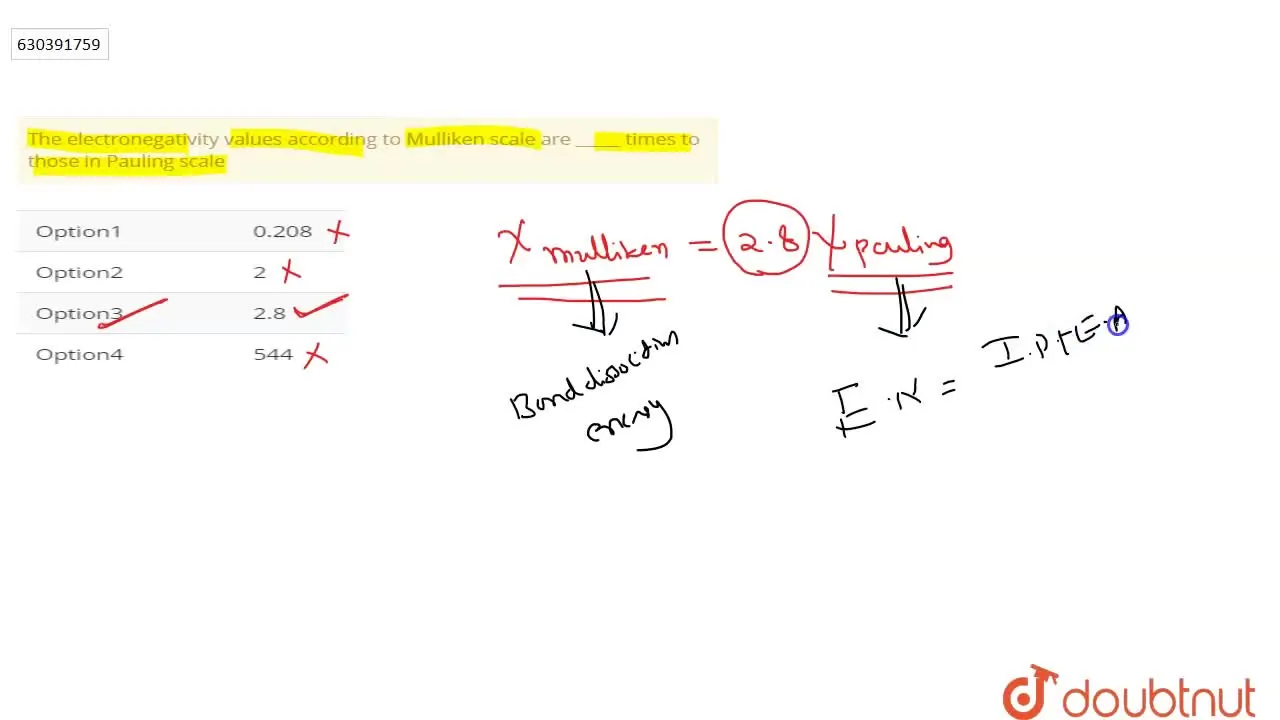 630391759
The electronegativity values according to Mulliken scale are _____ times to
those in Pauling scale
Option1 0.208 X
Option2 2 X
Option3 2.8 ✓
Option4 544 X
X mulliken = 2.8 X pauling
Bond
energy
E.N = I.P+E.A
doubtnut